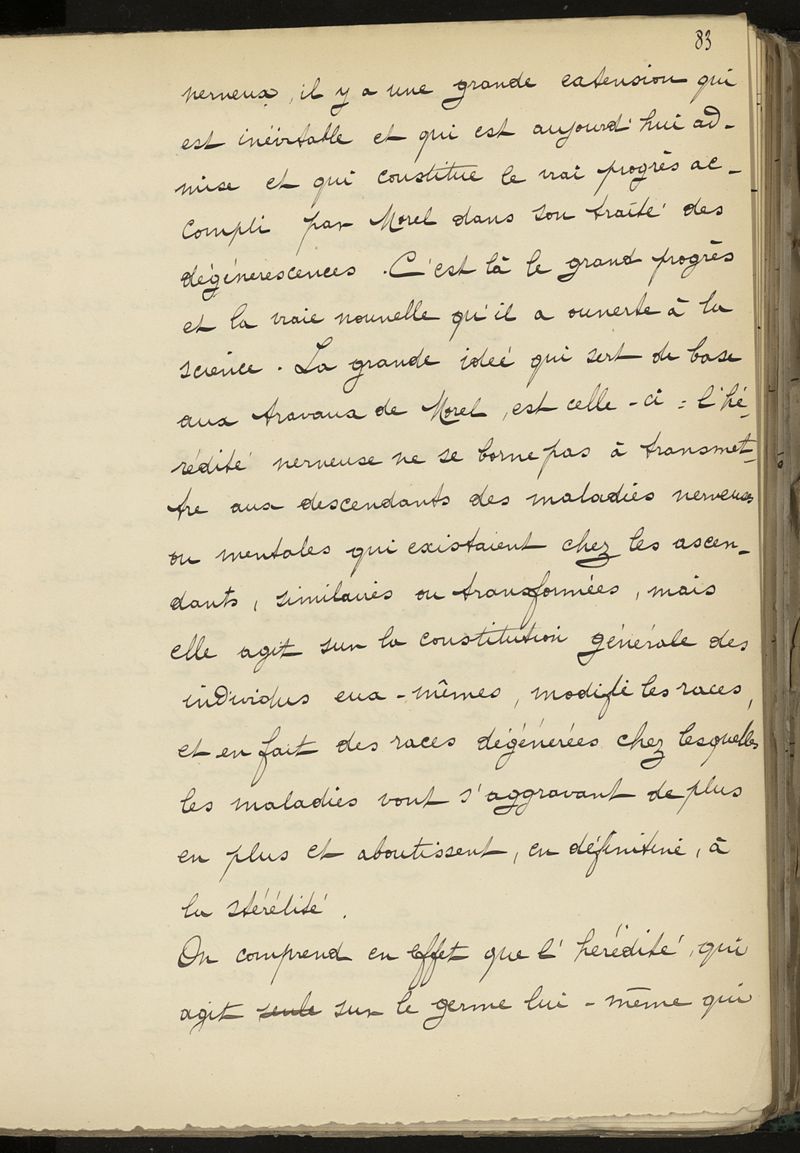 83
nerveux, il y a une grande extension qui
est inévitable et qui est aujourd'hui ad-
mise et qui constitue le vrai progrès ac-
compli par Morel dans son traité des
dégénérescences. C'est là le grand progrès
et la vraie nouvelle qu'il a ouverte à la
science. La grande idée qui sert de base
aux travaux de Morel, est celle-ci : l'hé-
rédité nerveuse ne se borne pas à transmet-
tre aux descendants des maladies nerveuses
ou mentales qui existaient chez les ascen-
dants, similaires ou transformées, mais
elle agit sur la constitution générale des
individus eux-mêmes, modifie les races,
et en fait des races dégénérées chez lesquelles
les maladies vont s'aggravant de plus
en plus et aboutissent, en définitive, à
la stérélité.
On comprend en effet que l'hérédité, qui
agit seule sur le germe lui-même qui